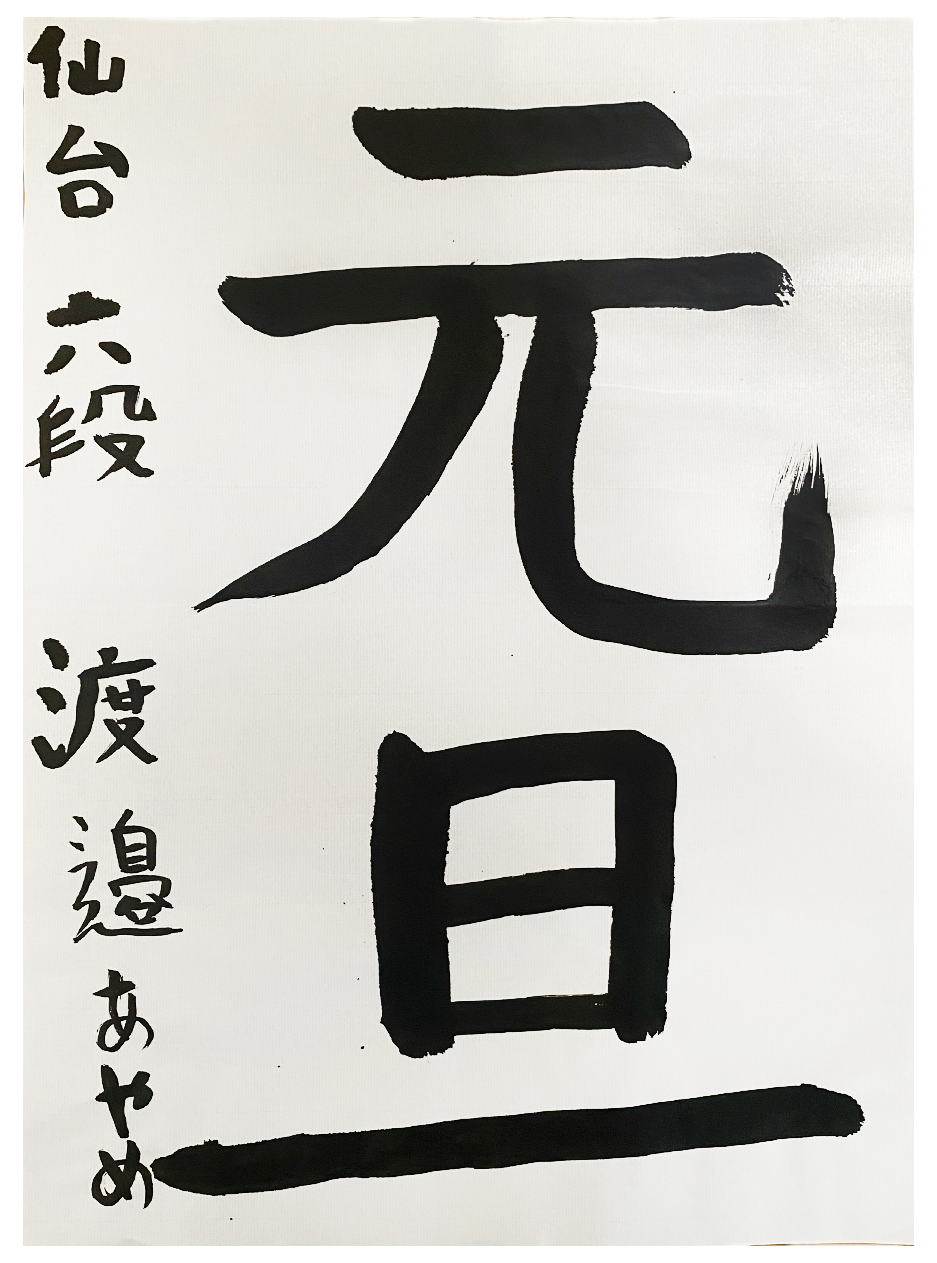 元旦
仙台 六段 渡邉あやめ